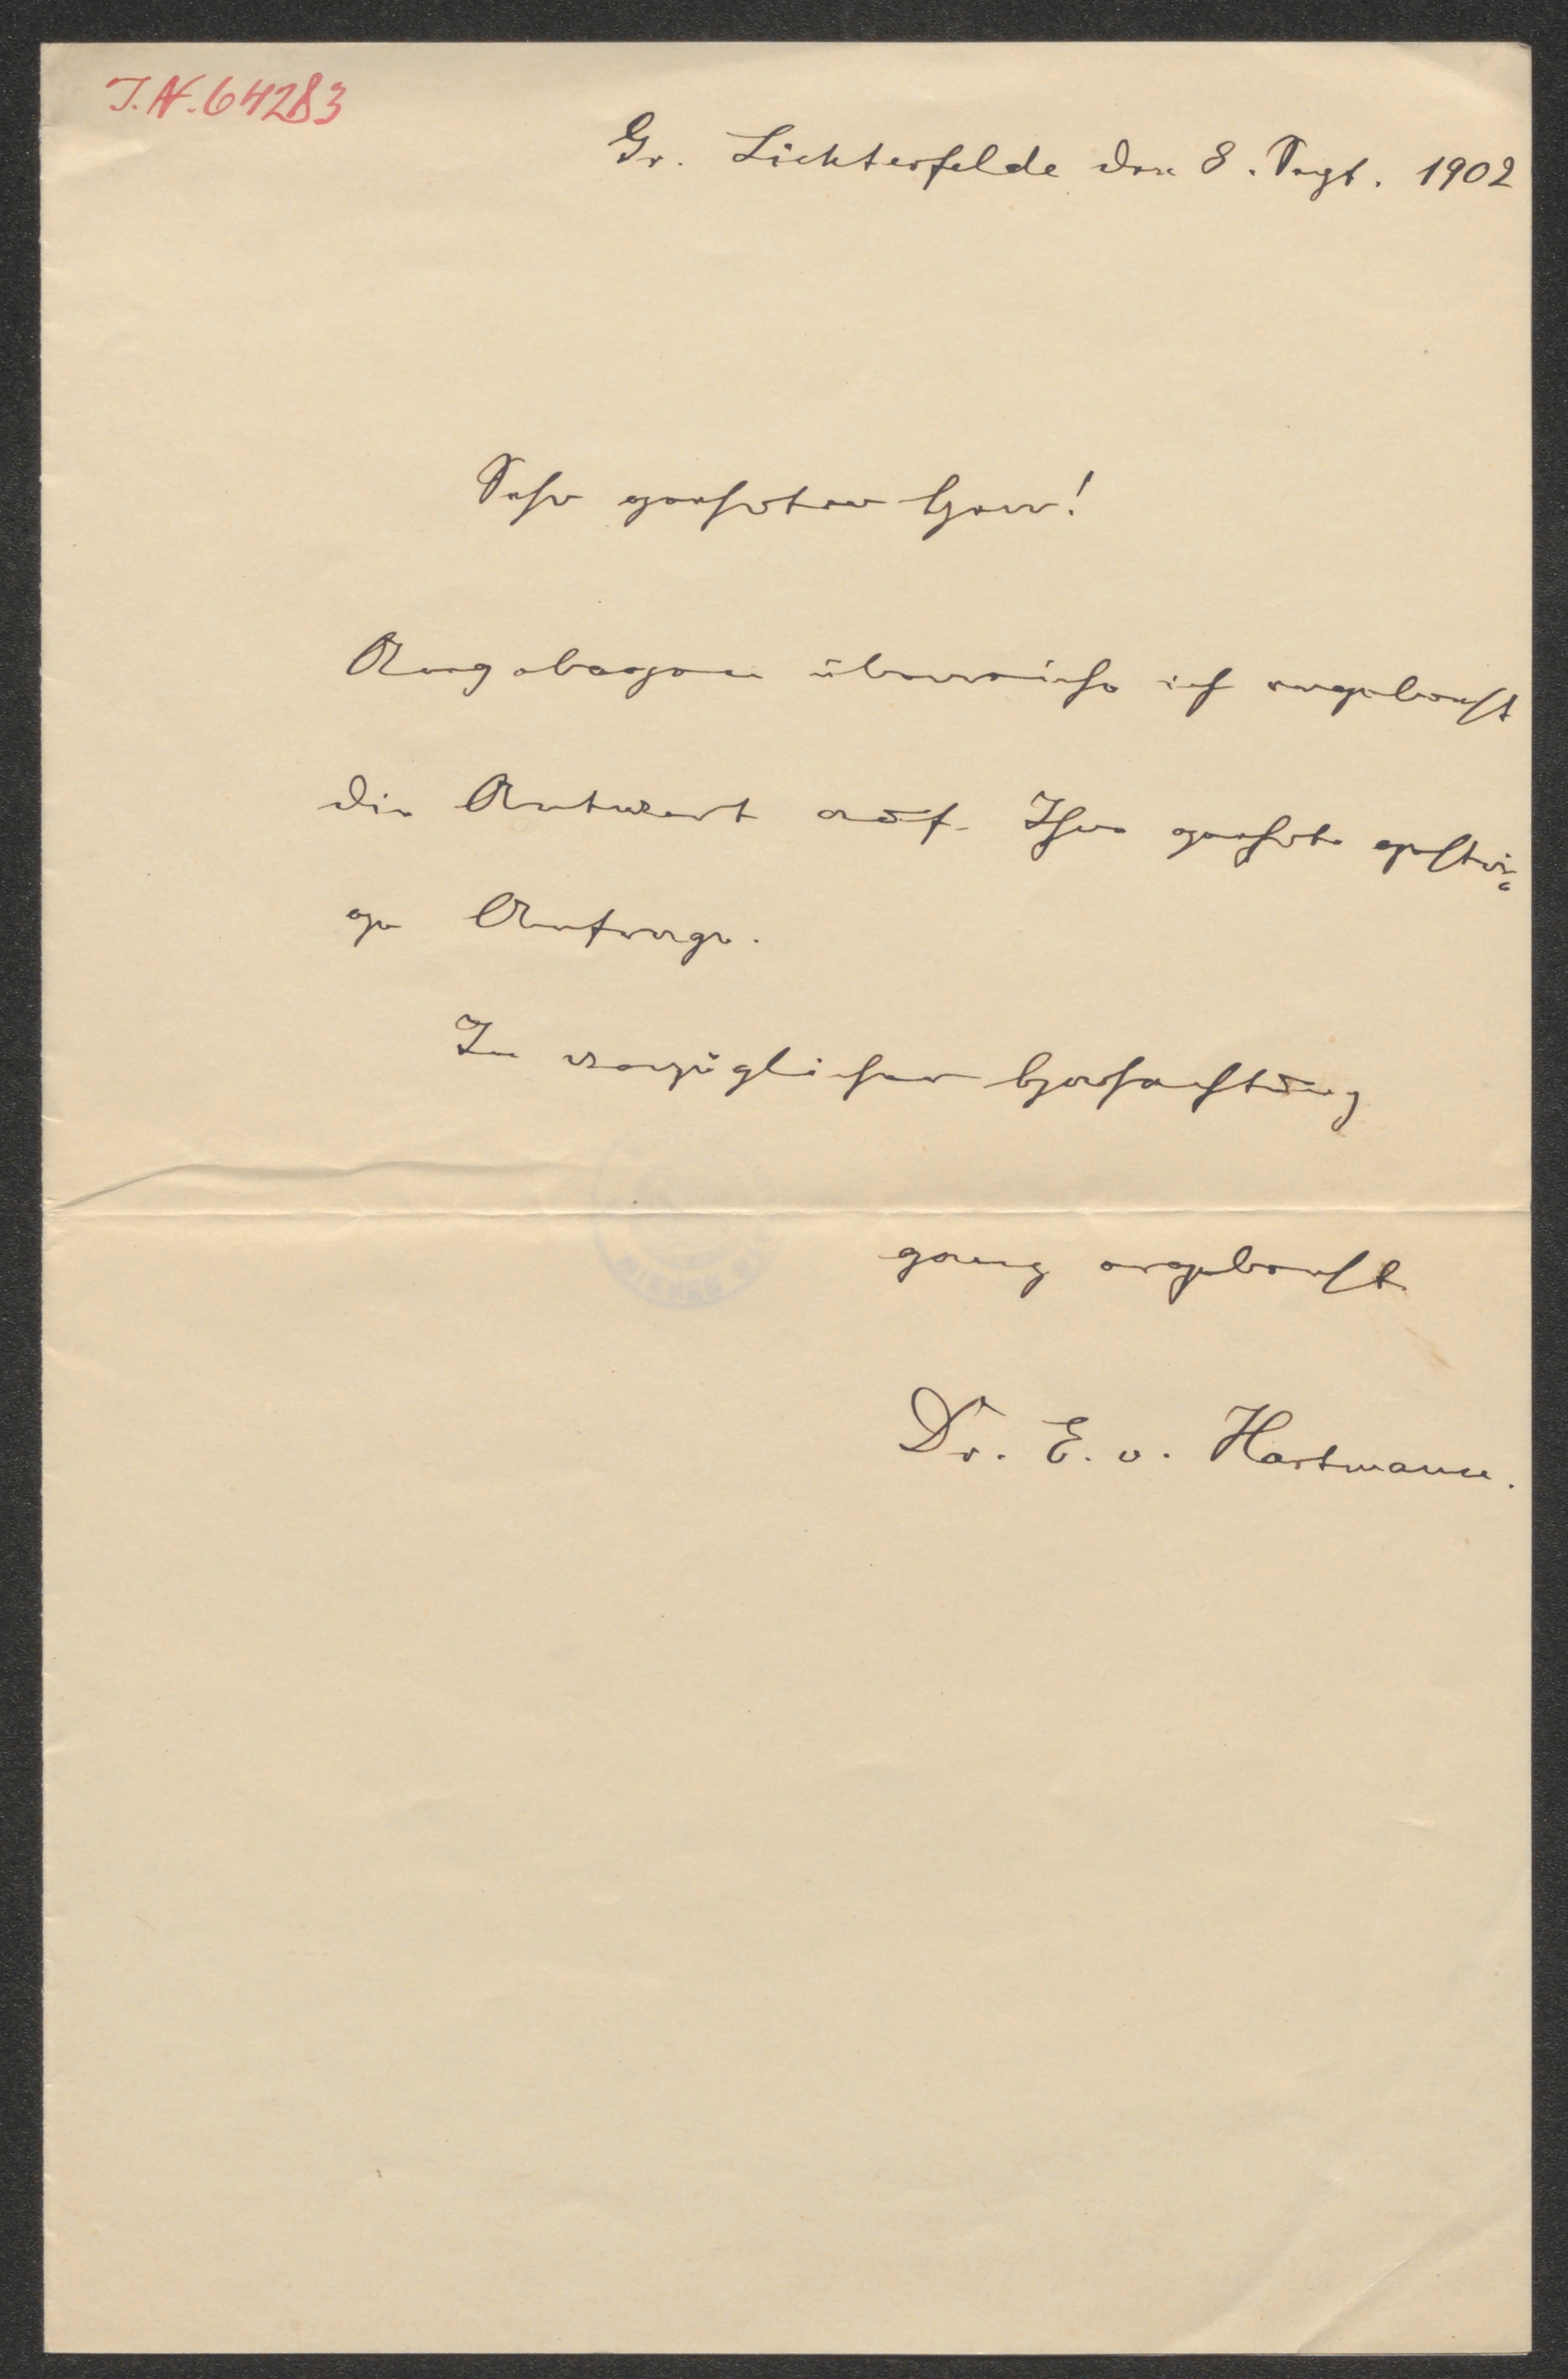 J.N. 64283
Gr. Lichterfelde den 8. Sept. 1902
Sehr geehrter Herr!
Angebogen überreiche ich ergebenst
die Antwort auf Ihre geehrte gestri-
ge Anfrage.
In vorzüglicher Hochachtung
ganz ergebenst
Dr. E. v. Hartmann.